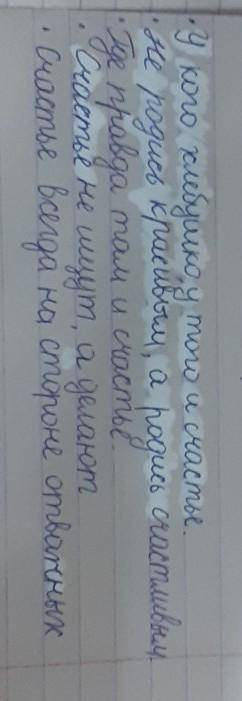 · У кого хлебушко, у того и счастье.
· Не родись красивым, а родись счастливым
· Где правда там и счастье.
· Счастье не ищут, а делают
· Счастье всегда на стороне отважных